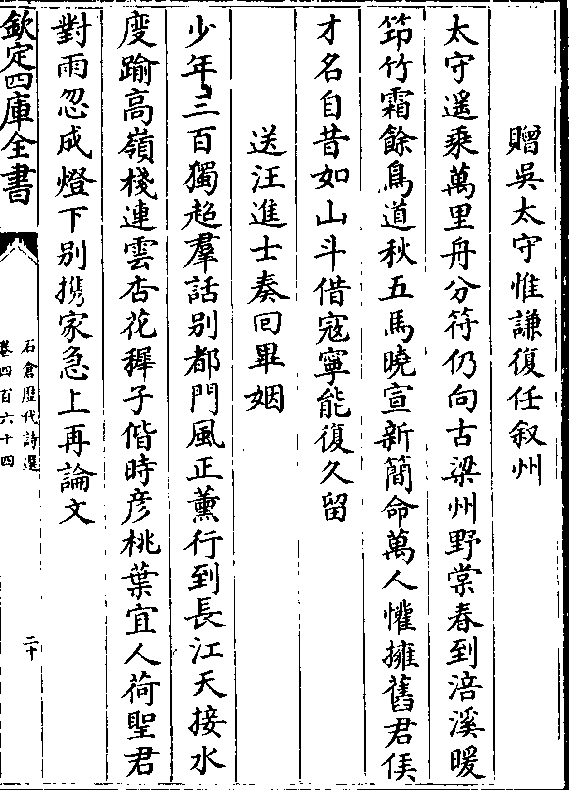 贈吳太守惟謙復任叙州
太守遥乘萬里舟分符仍向古梁州野棠春到涪溪暖
筇竹霜餘鳥道秋五馬曉宣新簡命萬人懽擁舊君侯
才名自昔如山斗借寇寧能復久留
送汪進士奏回畢姻
少年三百獨超羣話别都門風正薰行到長江天接水
度踰高嶺棧連雲杏花穉子偕時彦桃葉宜人荷聖君
對雨忽成燈下别携家急上再論文
欽定四庫全書
石倉歴代詩選
卷四百六十四
二十